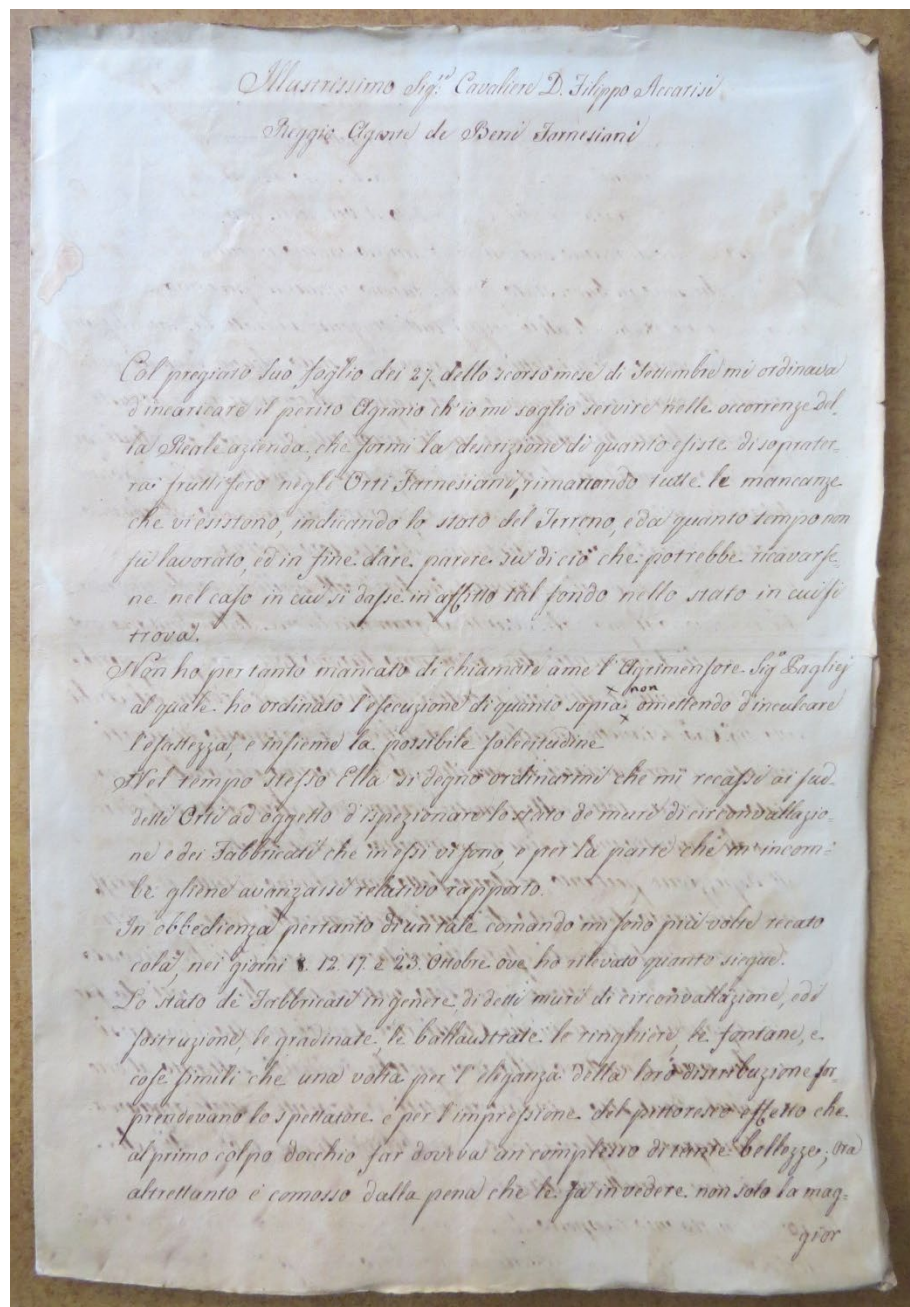 Illustrissimo Sig.re Cavaliere D. Filippo Accarisi
Reggio Agente de Beni Farnesiani
Col pregiato Suo foglio dei 27. dello scorso mese di Settembre mi ordinava
d'incaricare il perito Agrario ch'io mi soglio servire nelle occorrenze del
la Reale azienda, che formi la descrizione di quanto esiste di soprater-
ra fruttifero negli Orti Farnesiani, rimarcando tutte le mancanze
che vi esistono, indicando lo stato del Terreno, e da quanto tempo non
fu lavorato, ed in fine dare parere su di ciò che potrebbe ricavarse
ne nel caso in cui si dasse in affitto tal fondo nello stato in cui si
trova.
Non ho per tanto mancato di chiamare a me l'Agrimensore Sig.r Pagliej
al quale ho ordinato l'esecuzione di quanto sopra non omettendo d'inculcare
l'esattezza, e insieme la possibile solecitudine
Nel tempo stesso Ella si degnò ordinarmi che mi recassi ai sud-
detti Orti ad oggetto d'ispezionare lo stato de muri di circonvallazio-
ne e dei Fabbricati che in essi vi sono, e per la parte che m'incom=
be gliene avanzassi relativo rapporto.
In obbedienza pertanto di un tale comando mi sono più volte recato
colà, nei giorni 12. 17. e 23. Ottobre ove ho rilevato quanto siegue.
Lo stato de Fabbricati in genere, di detti muri di circonvallazione, e di
sostruzione, le gradinate le ballaustrate le ringhiere, le fontane, e
cose simili che una volta per l'eleganza della loro distribuzione sor-
prendevano lo spettatore e per l'impressione del pittoresco effetto che
al primo colpo docchio far doveva un complesso di tante bellezze; ora
altrettanto è comosso dalla pena che le fa in vedere non solo la mag=
gior